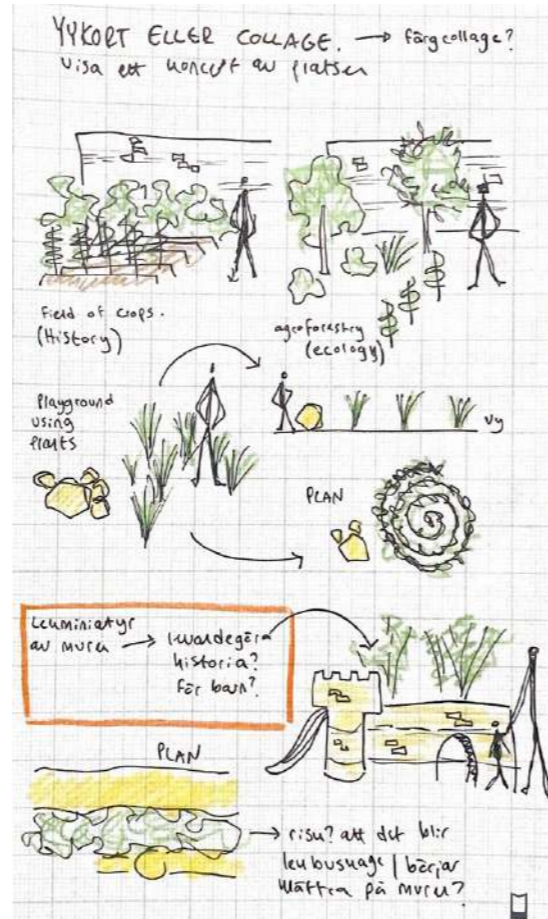 VYKORT ELLER COLLAGE. → färgcollage?
Visa ett koncept av platsen
Field of crops.
(History)
agroforestry
(ecology)
Playground
using
plants
Vy
PLAN
Lekminiatyr
av muren → levandegöra
historia?
För barn?
PLAN
→ risk? att det blir
lekbuskage / börjar
klättra på muren?